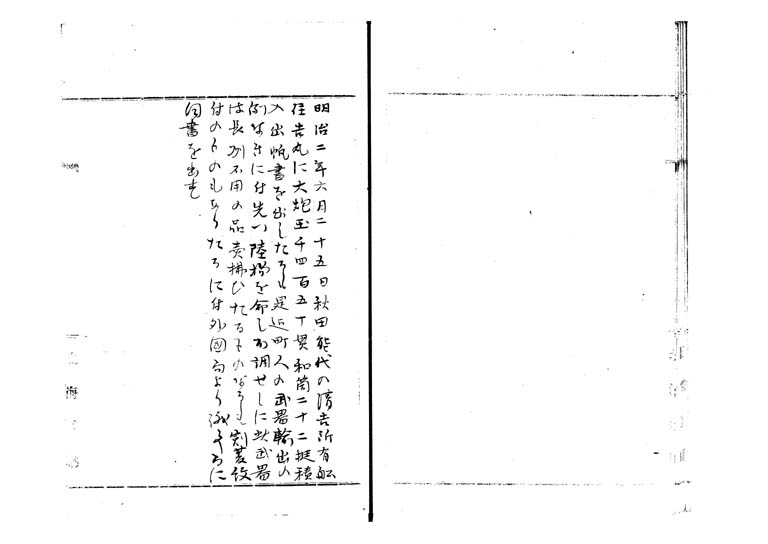 明治二年六月二十五日秋田能代の清吉所有舩
住吉丸に大炮玉千四百五十貫和筒二十二挺積
入出帆書を出したるも是迄町人の武器輸出の
例なきに付先つ陸揚を命し取調せしに此武器
は長州不用の品売拂ひたるものなるも
付のものもありたるに付外国局より
伺書を出す